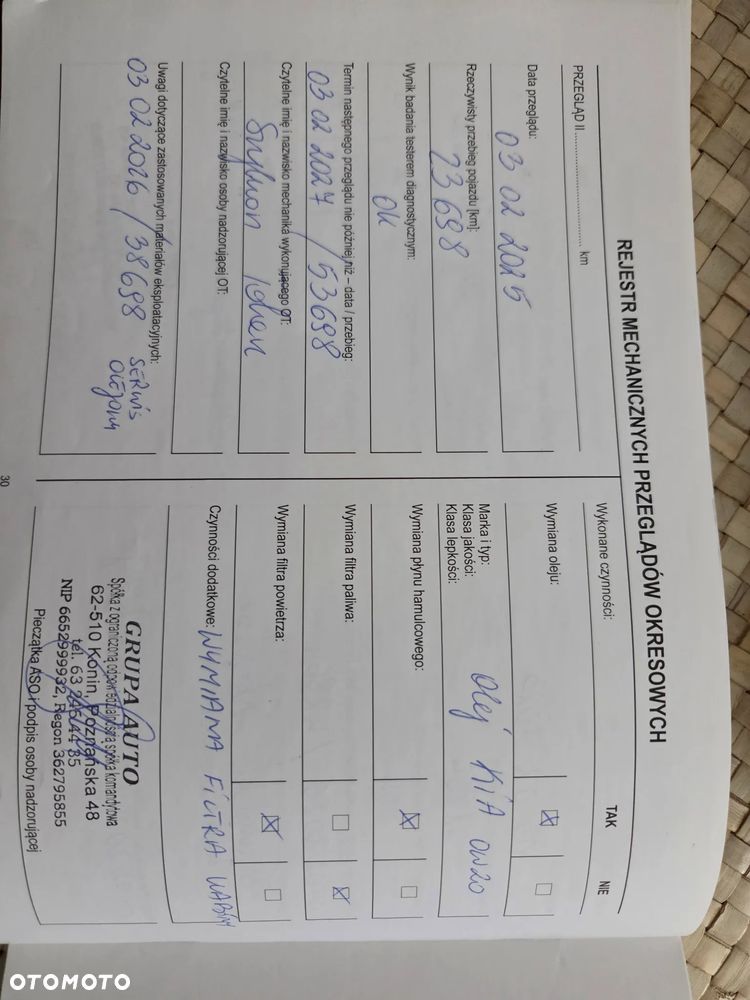 REJESTR MECHANICZNYCH PRZEGLĄDÓW OKRESOWYCH
PRZEGLĄD II ........................................ km
Data przeglądu:
03 02 2025
Rzeczywisty przebieg pojazdu [km]:
23 698
Wynik badania testerem diagnostycznym:
Ok
Termin następnego przeglądu nie później niż – data / przebieg:
03 02 2027 / 53698
Czytelne imię i nazwisko mechanika wykonującego OT:
Szymon
Czytelne imię i nazwisko osoby nadzorującej OT:
Uwagi dotyczące zastosowanych materiałów eksploatacyjnych:
03 02 2026 / 38698 SERWIS
OLEJOWY
30
Wykonane czynności: TAK NIE
Wymiana oleju:
Marka i typ:
Klasa jakości:
Klasa lepkości:
Olej KIA 0W20
Wymiana płynu hamulcowego:
Wymiana filtra paliwa:
Wymiana filtra powietrza:
Czynności dodatkowe: WYMIANA FILTRA KABINY
GRUPA AUTO
Spółka z ograniczoną odpowiedzialnością spółka komandytowa
62-510 Konin, Poznańska 48
tel. 63 246 44 85
NIP 6652999932, Regon 362795855
Pieczątka ASO i podpis osoby nadzorującej
OTOMOTO